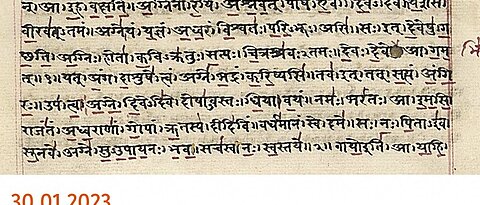 च। आ। इह। वक्षति॥ अग्निना। रयिं। अश्नवत्। पोषं। एव।
वीरवत्ऽतमं॥ अग्ने। यं। यज्ञं। अध्वरं। विश्वतः। परिऽभूः। असि। सः। इत्। देवेषु। ग
च्छति॥ अग्निः। होता। कविऽक्रतुः। सत्यः। चित्रश्रवःऽतमः। देवः। आ। गम
त्॥१॥ यत्। अंग। दाशुषे। त्वं। अग्ने। भद्रं। करिष्यसि। तव। इत्। तत्। सत्यं। अंगि
रः॥ उप। त्वा। अग्ने। दिवेऽदिवे। दोषाऽवस्तः। धिया। वयं। नमः। भरंतः। आ। इमसि॥
राजंतं। अध्वराणां। गोपां। ऋतस्य। दीदिविं। वर्धमानं। स्वे। दमे॥ सः। नः। पिताऽइव।
सूनवे। अग्ने। सुऽउपायनः। भव। सचस्व। नः। स्वस्तये॥२॥ वायो इति। आ। याहि।
30.01.2023